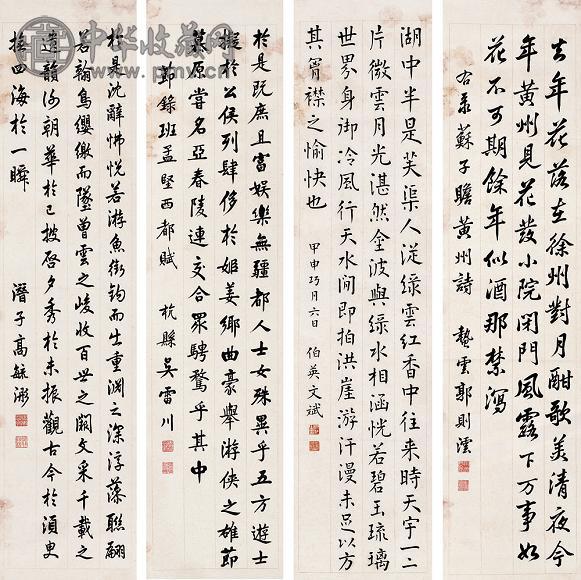 去年花落在徐州對月酣歌美清夜今
年黃州見花發小院閉門風露下万事如
花不可期餘年似酒那禁瀉
右录蘇子瞻黃州詩 蟄雲郭則澐
湖中半是芙渠人從綠雲紅香中往來時天宇一二
片微雲月光湛然金波與綠水相涵恍若碧玉琉璃
世界身御冷風行天水間即拍洪崖游汗漫未足以方
其胷襟之愉快也
甲申巧月六日 伯英文斌
於是既庶且富娛樂無疆都人士女殊異乎五方遊士
擬於公侯列肆侈於姬姜鄉曲豪舉游俠之雄節
慕原嘗名亞春陵連交合眾騁騖乎其中
節錄班孟堅西都賦 杭縣吳雷川
於是沈辭怫悅若游魚銜鉤而出重淵之深浮藻聯翩
若翰鳥纓繳而墜曾雲之峻收百世之闕文采千載之
遺韻謝朝華於已披啓夕秀於未振觀古今於湏臾
撫四海於一瞬
潛子高毓浵
中华收藏网
www.pmv.cn